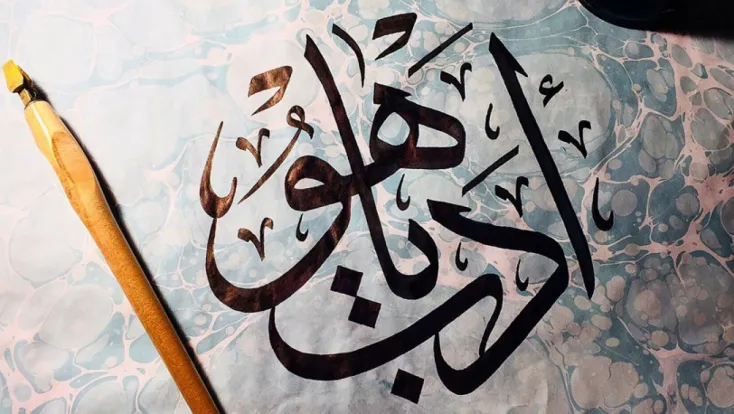 أدب يا هو